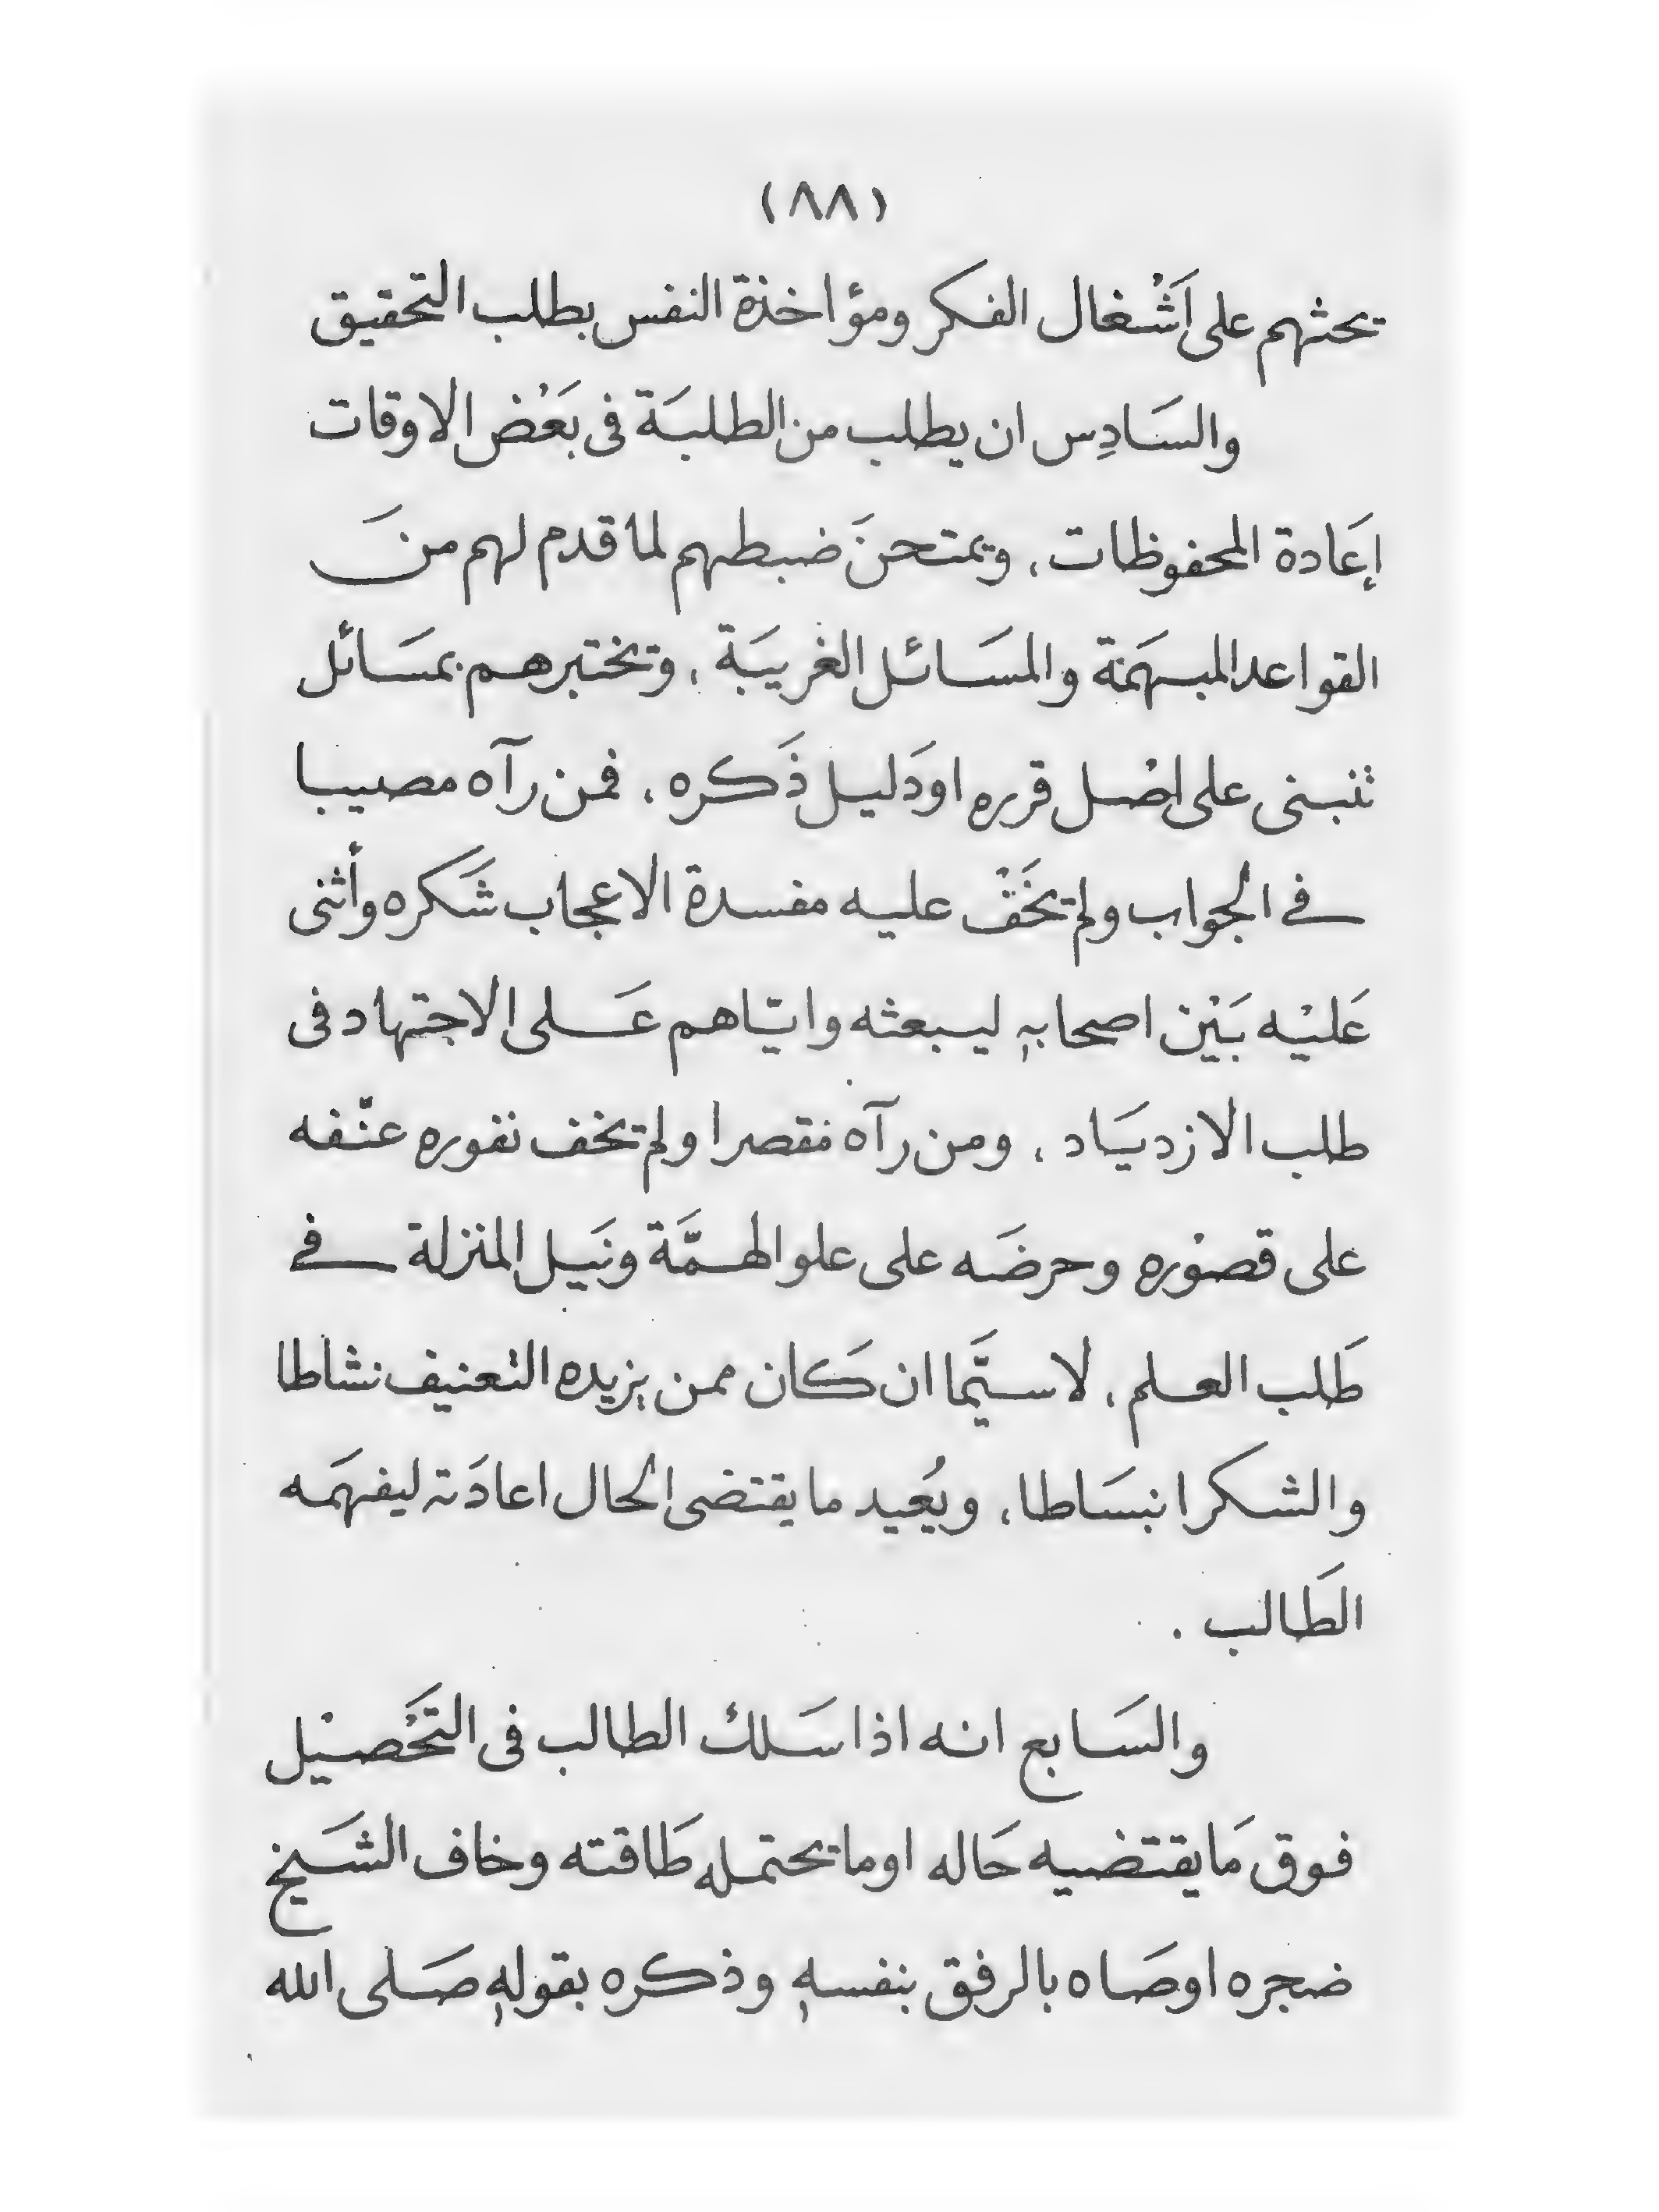 (٨٨)
يحثهم على اَشْغال الفكر ومؤاخذة النفس بطلب التحقيق
والسَادِس ان يطلب من الطلبَة فى بَعْض الاوقات
إعَادة المحفوظات، ويمتحنَ ضبطهم لما قدم لهم منَ
القواعد المبهَمة والمسَائل الغريبَة، ويختبرهم بمسَائل
تنبنى على اصْل قرره اودَليل ذَكره، فمن رآه مصيبا
فى الجواب ولم يخَفْ عليه مفسدة الاعجاب شَكره وأثنى
عَليْه بَيْن اصحابهٖ ليبعثه وايّاهم عَلى الاجتهاد فى
طلب الازديَاد، ومن رآه مقصرا ولم يخف نفوره عنّفه
على قصوْره وحرضَه على علو الهمَّة ونَيل المنزلة فى
طَلب العلم، لاسيَّما ان كَان ممن يزيده التعنيف نشاطا
والشكر انبسَاطا، ويُعيد ما يقتضى الحال اعادَته ليفهَمه
الطَالب .
والسَابع انه اذا سَلك الطالب فى التَحْصيْل
فوق مَا يقتضيه حَاله او ما يحتمله طَاقته وخاف الشَيخ
ضجره اوصَاه بالرفق بنفسهٖ وذكره بقولهٖ صَلى الله